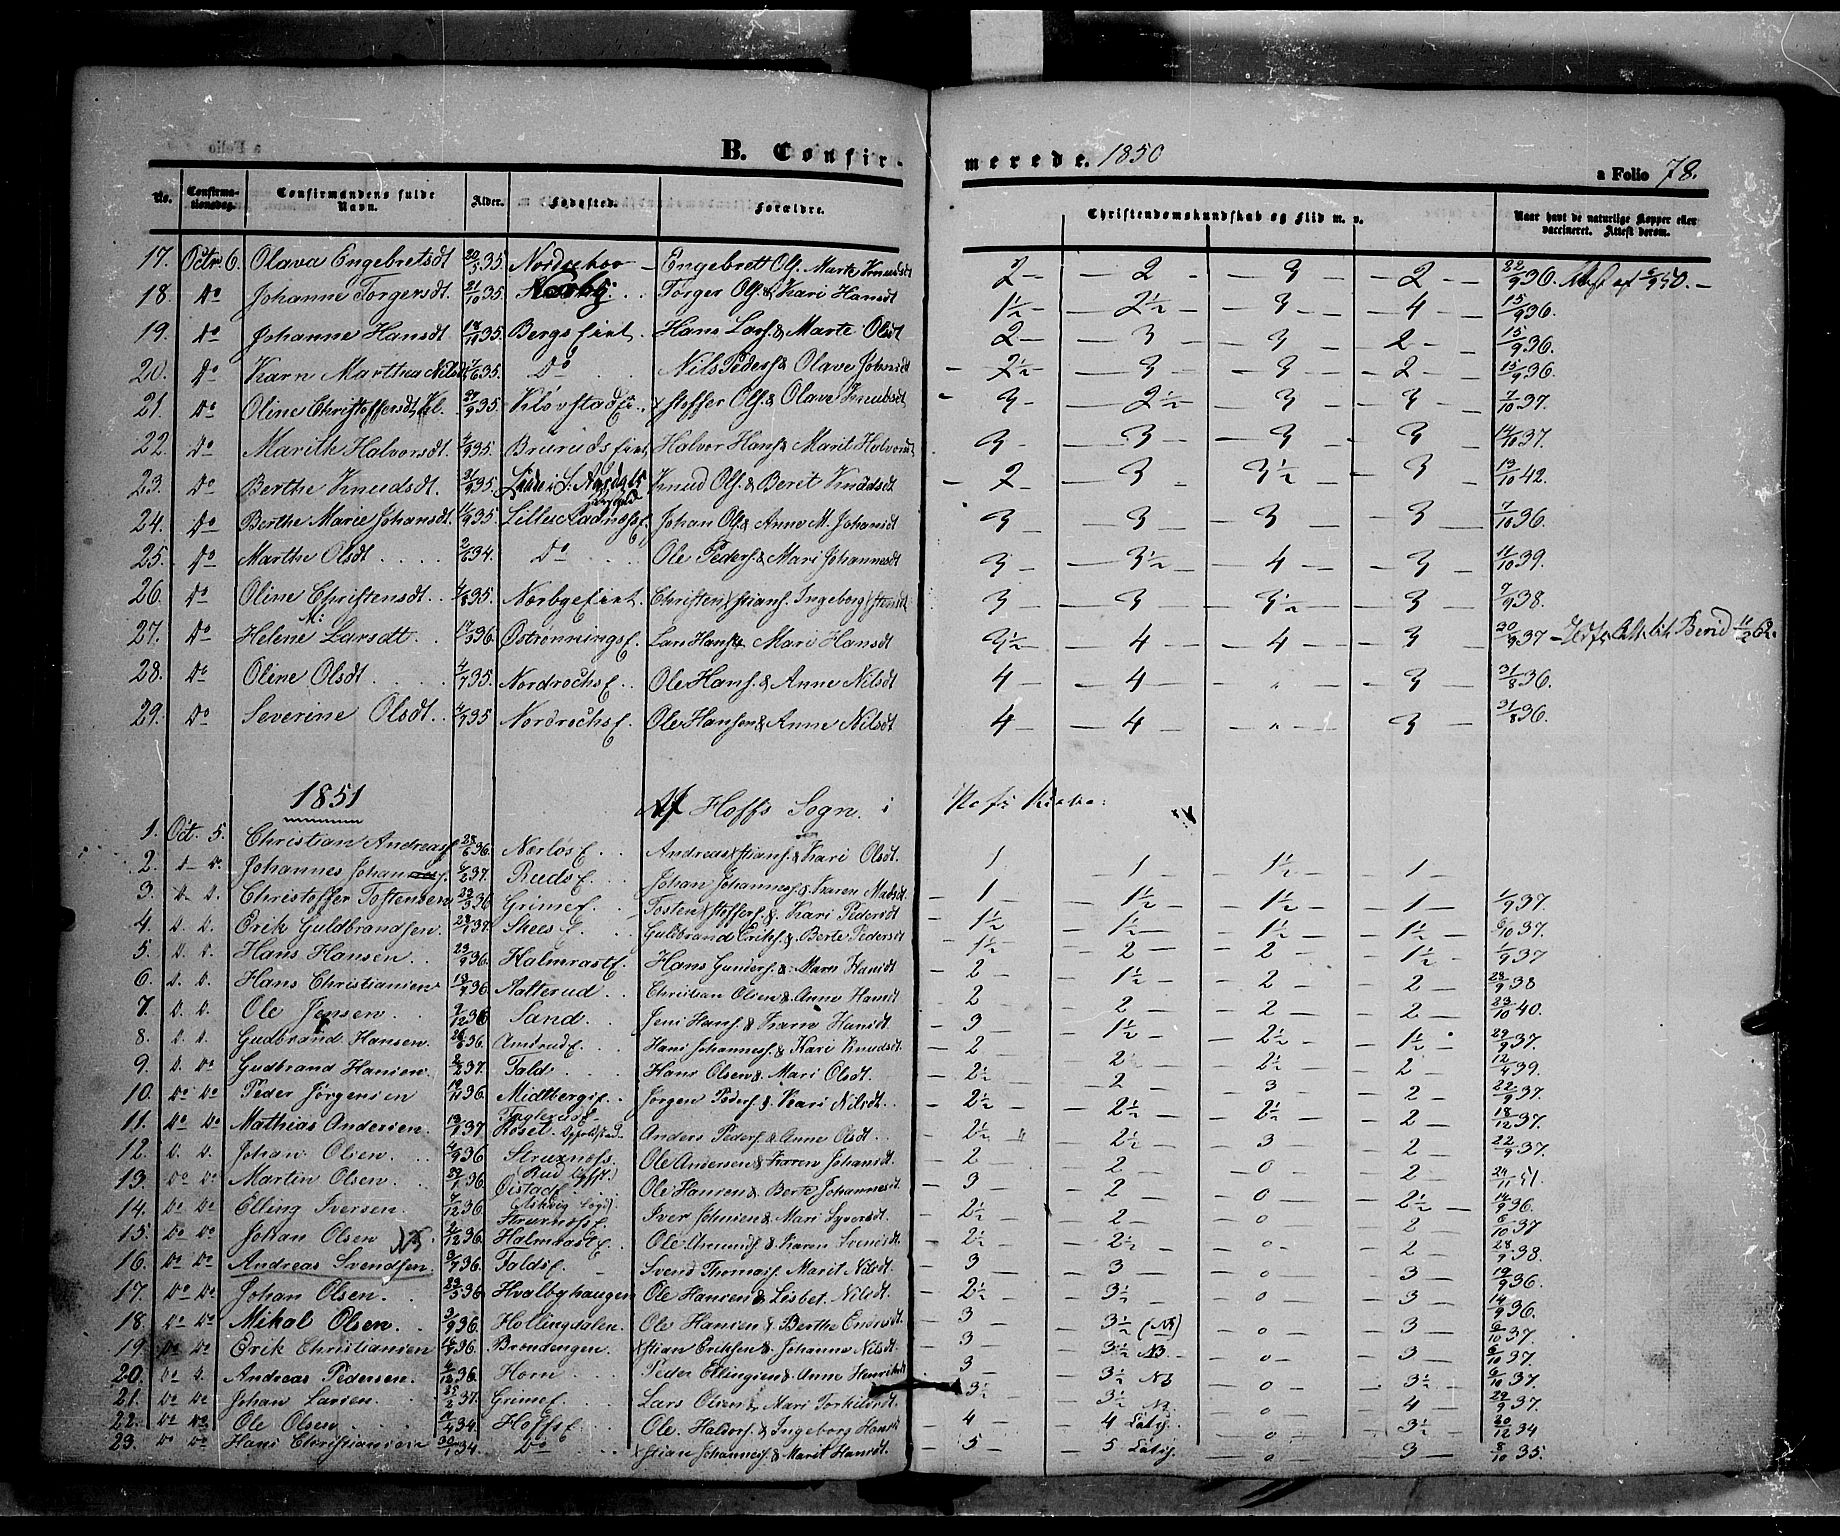 B. Confirmerede. 1850
a Folio 78.
No. Confirmationsdag. Confirmandens fulde Navn. Alder. Fødested. Forældre. Christendomskundskab og Flid m. v. Naar havt de naturlige Kopper eller vaccineret. Attest derom.
17. Octr. 6. Olava Engebretsdt 20/5 35. Engebrett Ols. Marte Knudsdt 2 - 2 - 3 - 2 - 22/9 36.
18. Do Johanne Torgersdt. 21/10 35. Torger Ols. & Kari Hansdt 1½ - 2½ - 3 - 4 - 15/9 36.
19. Do Johanne Hansdt 35. Bergseint. Hans Lars. & Marte Olsdt 2 - 3 - 3 - 2 - 15/9 36.
20. Do Karn Marthea Nilsdt 7/6 35. Do Nils Peders. & Olave Johnsdt - 2½ - 3 - 3 - 2 - 15/9 36.
21. Do Oline Christoffersdt 35. Xstoffer Ols. & Olava Knudsdt - 3 - 2½ - 3 - 3 - 7/10 37.
22. Do Marith Halvorsdt. 35. Bruruds eint. Halvor Hans. & Marit Halvorsdt 3 - 3 - 3 - 3 - 14/10 37.
23. Do Berthe Knudsdt. 35. Knud Ols. & Berit Knudsdt - 2 - 3 - 3½ - 3 - 13/10 42.
24. Do Berthe Marie Johansdt. 35. Johan Ols. & Anne M. Johansdt 3 - 3 - 3 - 3 - 7/10 36.
25. Do Marthe Olsdt 2/6 34. Do Ole Peders. & Mari Johannesdt 3 - 3½ - 4 - 3 - 11/10 39.
26. Do Oline Christensdt 35. Norbyeeint. Christen Xstians. Ingeborg Xstensdt 3 - 3 - 3½ - 3 - 7/9 38.
27. Do Helene M. Larsdt. 36. Østrønningse. Lars Hans. & Mari Hansdt 3½ - 4 - 4 - 3 - 20/9 37
28. Do Oline Olsdt 4/7 35. Nordrochse. Ole Hans. & Anne Nilsdt 4 - 4 - " - 3 - 31/8 36.
29. Do Severine Olsdt. 4/7 35 Nordrochse. Ole Hansen & Anne Nilsdt 4 - 4 - " - 3 - 31/8 36.
1851 Af Hoffs Sogn i Hofs Kirke:
1. Oct. 5. Christian Andreas. 28/6 36. Nærløse. Andreas Xstians. & Kari Olsdt. 1 1 1½ 1
2. D- Do. Johannes Johannes. 6/2 37. Rudse. Johan Johanness. & Karen Madsdt. - 1 - 1½ - 1½ - 1 - 1/9 37
3. D. D. Christoffer Tostensen 23/3 36 Grimee. Tosten Xstoffers. & Kari Pedersdt - 1½ - 1½ - 1½ - 1½ - 6/10 37.
4. D. D. Erik Guldbrandsen. 37. Skees e. Guldbrand Eriks. & Berte Pedersdt - 1½ - 2 - 2 - 1½ - 1/9 37
5. D. D. Hans Hansen 23/9 36. Halmraste. Hans Gunders. & Marn Hansdt - 2 - 1½ - 2 - 2 - 28/9 38
6. D. D. Hans Christiansen 18/9 36. Aalterud Christian Olsen & Anne Hansdt - 2 - 2 - 2 - 2 - 23/10 40.
7. D. D. Ole Jensen 9/12 36 Sand. Jens Hans. & Karn Hansdt. - 3 - 1½ - 2½ - 1½ - 29/9 37.
8. D. D. Gudbrand Hansen. 36. Amrude. Hans Johanness. & Kari Knudsdt. - 2 - 2 - 2½ - 2 - 12/4 39.
9. D. Do Gudbrand Hansen. 37. Falds. Hans Olsen & Mari Olsdt. - 2½ - 2 - 3 - 2 - 22/9 37.
10. Do Do Peder Jörgensen 19/11 36. Midtbergse. Jörgen Peders. & Kari Nilsdt. - 2½ - 2½ - 2½ - 2 - 18/12 37.
11. Do Do Mathias Andersen. 37. Anders Peders. & Anne Olsdt. - 2½ - 2½ - 3 - 2 - 22/9 37.
12. D. D. Johan Olsen. 4/9 36 Struxnæss. Ole Andersen & Karen Johansdt. - 2 - 2 - 0 - 2 - 24/11 51.
13. Do Do Martin Olsen. 36 Ole Hansen & Berte Johannesdt. - 3 - 2 - 0 - 2½ - 14/9 36.
14. Do Do Elling Iversen. 7/12 36 Iver Johnsen & Mari Syversdt. - 2½ - 2 - 0 - 2 - 6/10 37
15. Do Do Johan Olsen 2/12 36. Halmraste. Ole Amunds. & Karen Svensdt. - 2½ - 2½ - 0 - 2 - 28/9 38.
16. Do Do Andreas Svendsen. NB 36. Faldse. Svend Thomas. Marit Nilsdt. - 3 - 3 - 0 - 3 - 19/9 36.
17. Do Do Johan Olsen. 23/5 36 Hvalbyhaugen Ole Hansen & Lisbet. Nilsdt. - 2½ - 3½ - 0 - 3 - 14/9 36.
18. Do Do Mikal Olsen. 3/9 36. Hollingdalen. Ole Hansen & Berthe Enersdt. - 3 - 3½ (NB) - 0 - 3 - 6/10 37.
19. Do Do Erik Christiansen 36. Brendengen. Xstian Eriksen & Johanne Nilsdt. - 3 - 3½ NB. - 0 - 3 - 6/10 37.
20. Do D. Andreas Pedersen. 36. Horn Peder Ellingsen & Anne Henriksdt - 3 - 3½ NB - 0 - 3½ - 6/10 37.
21. Do Do Johan Larsen. 37. Grimee. Lars Olsen & Mari Torkildsdt. - 3½ - 3½ NB. - 0 - 4 - 29/9 37.
22. Do Do Ole Olsen 34. Hoffse. Ole Haldors. & Ingeborg Hansdt - 4 - 4 Ladsg. - 0 - 3½ - 20/12 34
23. Do Do Hans Christiansen 34. Do Xstian Johannes. & Marit Hansdt. - 5 - 5 Ladsg. - 0 - 3 - 8/10 35.